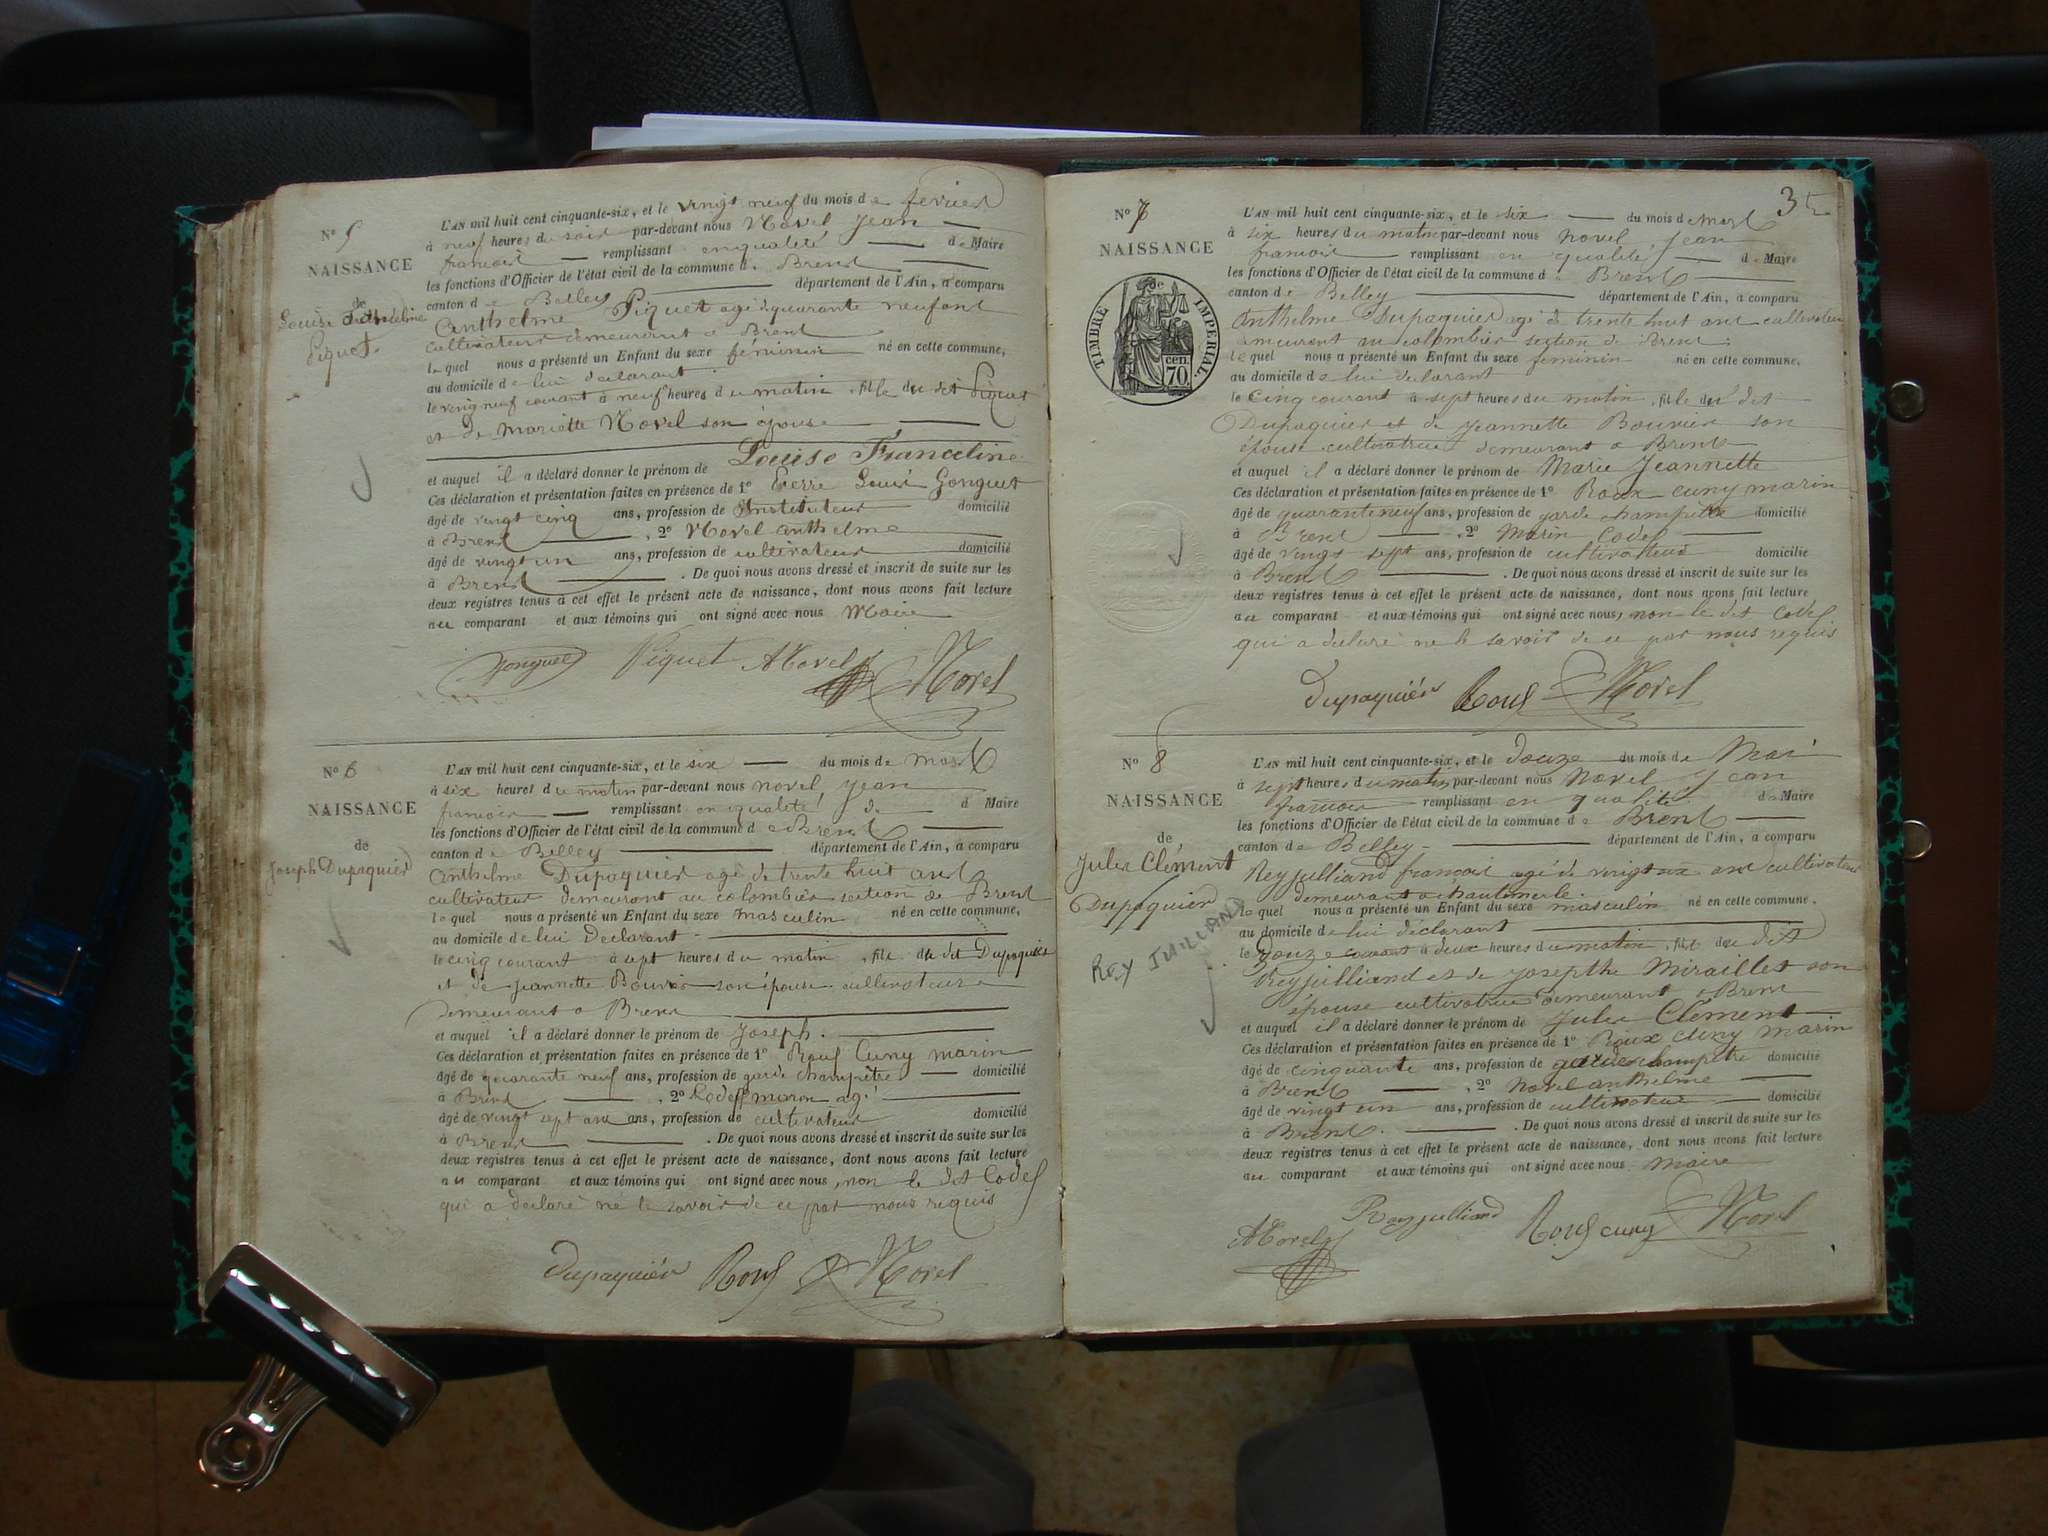 N° 5
NAISSANCE
de
Louise Franceline
Piquet
L'AN mil huit cent cinquante-six, et le vingt neuf du mois de fevrier
à neuf heures du soir par-devant nous Novel Jean
francois remplissant en qualité de Maire
les fonctions d'Officier de l'état civil de la commune de Brens
canton de Belley département de l'Ain, a comparu
Anthelme Piquet agé de quarante neuf ans
cultivateur demeurant a Brens
lequel nous a présenté un Enfant du sexe féminin né en cette commune,
au domicile de lui déclarant
le vingt neuf courant à neuf heures du matin, fille du dit Piquet
et de Mariette Novel son épouse
et auquel il a déclaré donner le prénom de Louise Franceline
Ces déclaration et présentation faites en présence de 1° Pierre Louis Gonguet
âgé de vingt cinq ans, profession de Instituteur domicilié
à Brens , 2° Novel anthelme
âgé de vingt un ans, profession de cultivateur domicilié
à Brens . De quoi nous avons dressé et inscrit de suite sur les
deux registres tenus à cet effet le présent acte de naissance, dont nous avons fait lecture
au comparant et aux témoins qui ont signé avec nous Maire
Gonguet Piquet ANovel Novel
N° 6
NAISSANCE
de
Joseph Dupaquier
L'AN mil huit cent cinquante-six, et le six du mois de mars
à six heures du matin par-devant nous novel jean
francois remplissant en qualité de d Maire
les fonctions d'Officier de l'état civil de la commune de Brens
canton de Belley département de l'Ain, a comparu
Anthelme Dupaquier agé de trente huit ans
cultivateur demeurant au colombier section de Brens
lequel nous a présenté un Enfant du sexe masculin né en cette commune,
au domicile de lui Declarant
le cinq courant à sept heures du matin, fils du dit Dupaquier
et de jeannette Bouvier son épouse cultivateurs
demeurant a Brens
et auquel il a déclaré donner le prénom de joseph.
Ces déclaration et présentation faites en présence de 1° Roux Cuny marin
âgé de quarante neuf ans, profession de garde champêtre domicilié
à Brens , 2° Codex marin agé
âgé de vingt sept ans ans, profession de cultivateur domicilié
à Brens . De quoi nous avons dressé et inscrit de suite sur les
deux registres tenus à cet effet le présent acte de naissance, dont nous avons fait lecture
au comparant et aux témoins qui ont signé avec nous, non le dit Codex
qui a declaré ne le savoir de ce par nous requis
Dupaquier Roux Novel
35
N° 7
NAISSANCE
de
TIMBRE IMPERIAL
70 cen.
L'AN mil huit cent cinquante-six, et le six du mois de Mars
à six heures du matin par-devant nous novel jean
francois remplissant en qualité de Maire
les fonctions d'Officier de l'état civil de la commune de Brens
canton de Belley département de l'Ain, a comparu
Anthelme Dupaquier agé de trente huit ans cultivateur
demeurant au colombier section de Brens
lequel nous a présenté un Enfant du sexe feminin né en cette commune,
au domicile de lui declarant
le cinq courant à sept heures du matin, fille du dit
Dupaquier et de jeannette Bouvier son
épouse cultivatrice demeurant a Brens
et auquel il a déclaré donner le prénom de Marie Jeannette
Ces déclaration et présentation faites en présence de 1° Roux cuny marin
âgé de quarante neuf ans, profession de garde champetre domicilié
à Brens , 2° Marin Codex
âgé de vingt sept ans, profession de cultivateur domicilié
à Brens . De quoi nous avons dressé et inscrit de suite sur les
deux registres tenus à cet effet le présent acte de naissance, dont nous avons fait lecture
au comparant et aux témoins qui ont signé avec nous, non le dit Codex
qui a declaré ne le savoir de ce par nous requis
Dupaquier Roux Novel
N° 8
NAISSANCE
de
Jules Clément
Dupaquier
REY JUILLAND
L'AN mil huit cent cinquante-six, et le douze du mois de Mai
à sept heures du matin par-devant nous Novel Jean
francois remplissant en qualité de Maire
les fonctions d'Officier de l'état civil de la commune de Brens
canton de Belley département de l'Ain, a comparu
Reyjulliand francois agé de vingt ans cultivateur
demeurant a
lequel nous a présenté un Enfant du sexe masculin né en cette commune,
au domicile de lui déclarant
le douze courant à deux heures du matin, fils du dit
Reyjulliand et de josepthe Miraillet son
épouse cultivatrice demeurant a Brens
et auquel il a déclaré donner le prénom de Jules Clément
Ces déclaration et présentation faites en présence de 1° Roux Cuny Marin
âgé de cinquante ans, profession de garde champetre domicilié
à Brens , 2° Novel anthelme
âgé de vingt un ans, profession de cultivateur domicilié
à Brens. . De quoi nous avons dressé et inscrit de suite sur les
deux registres tenus à cet effet le présent acte de naissance, dont nous avons fait lecture
au comparant et aux témoins qui ont signé avec nous Maire
ANovel Reyjulliand Roux cuny Novel